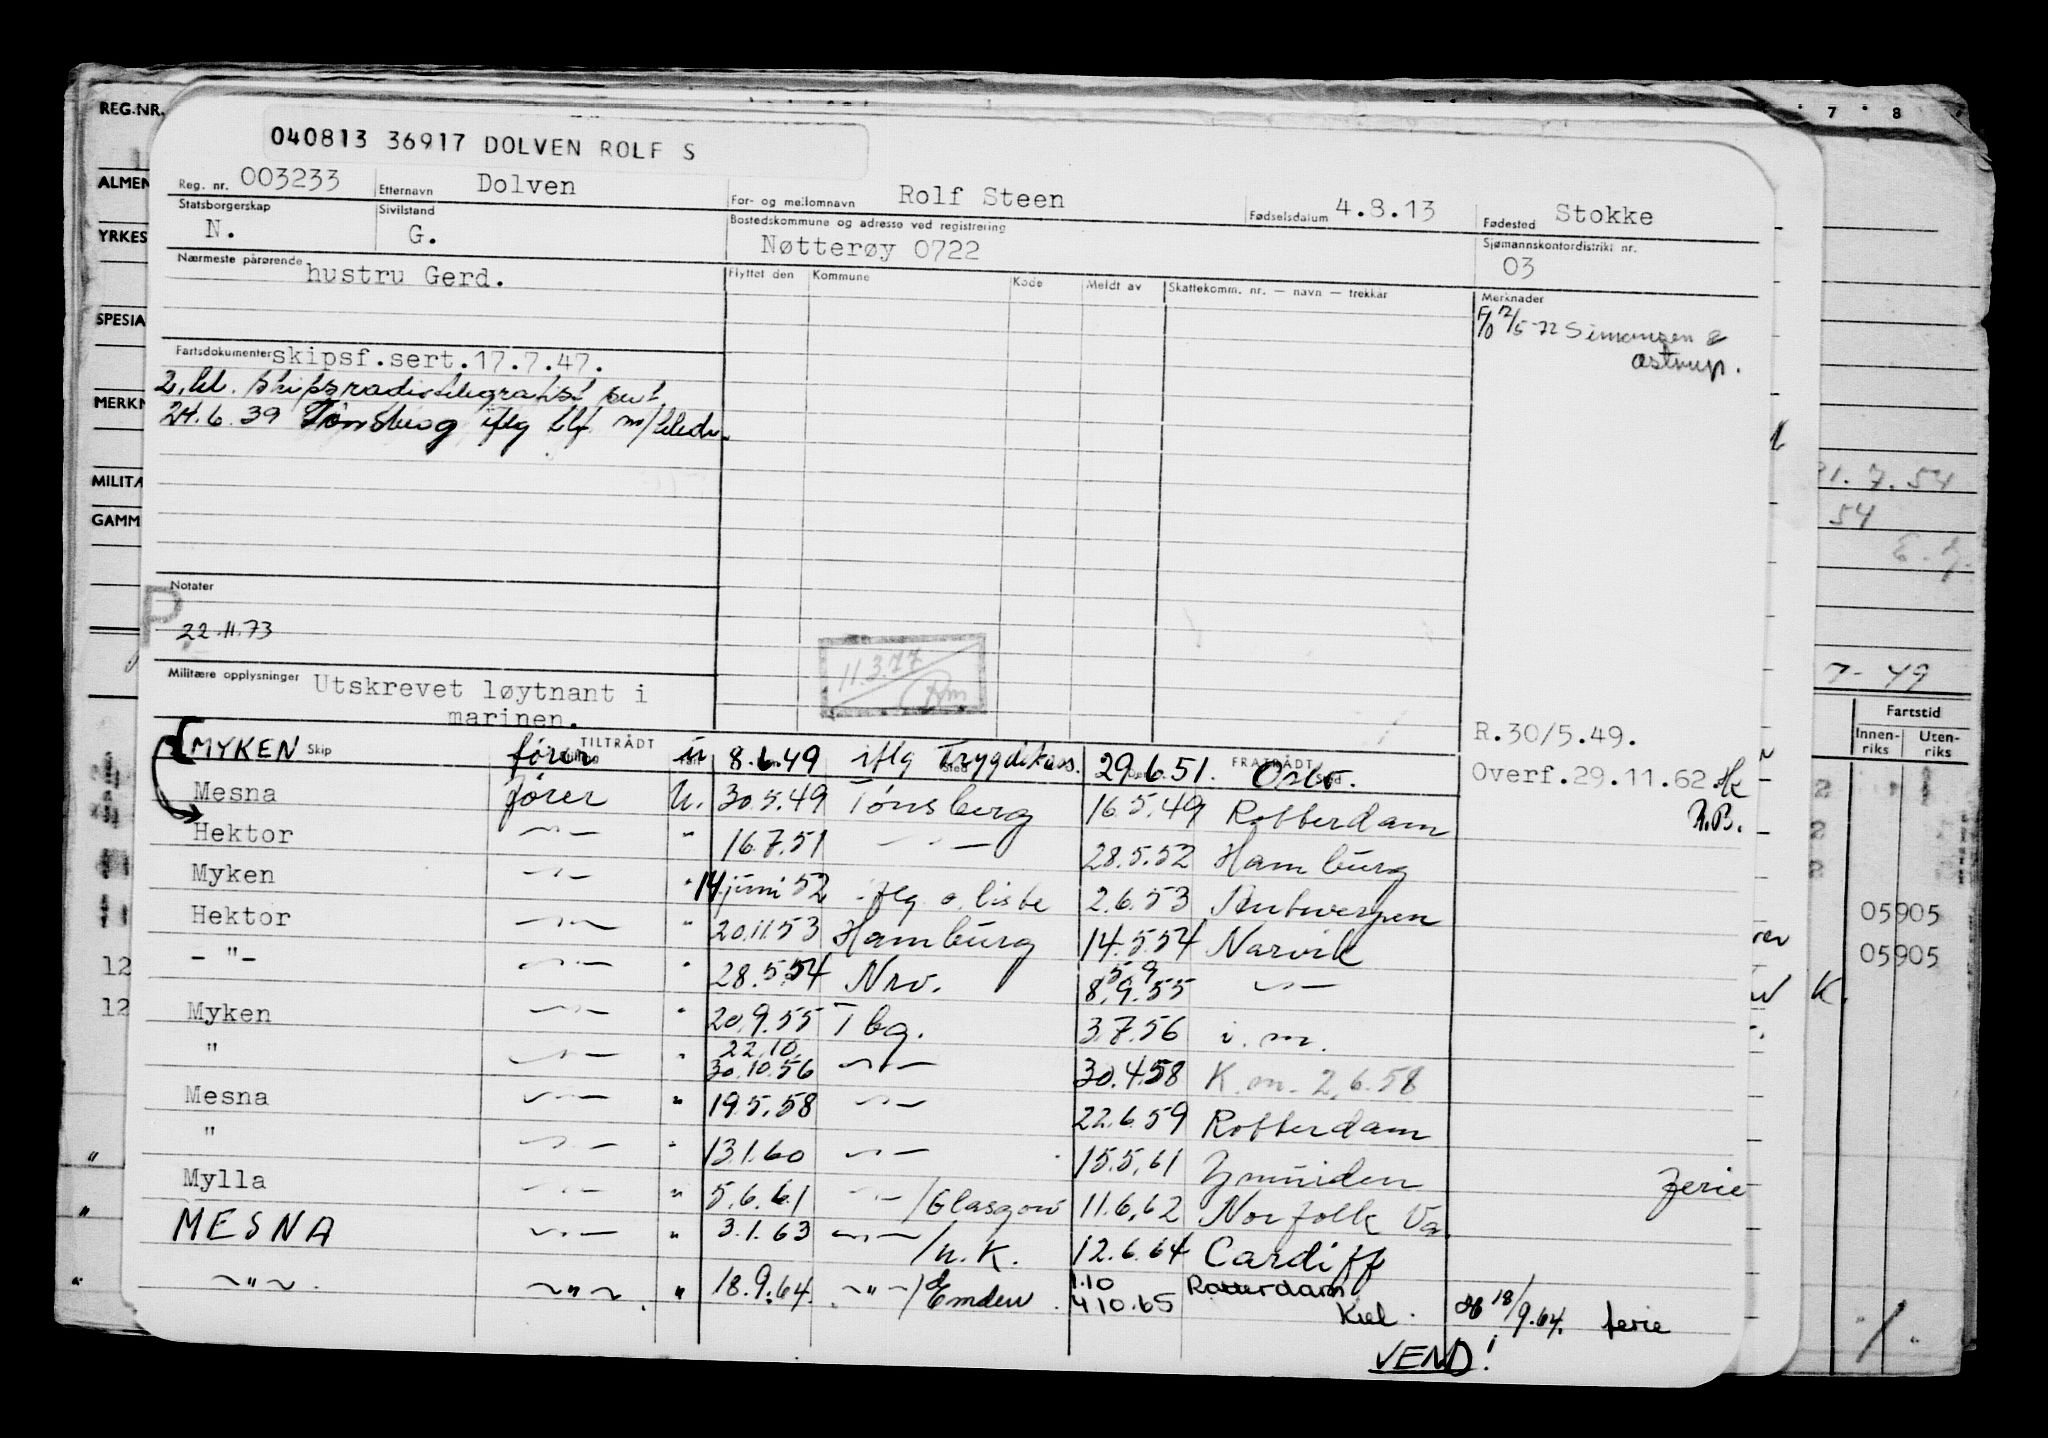 REG.NR.
040813 36917 DOLVEN ROLF S
7 8
Reg. nr. 003233 Etternavn Dolven For- og mellomnavn Rolf Steen Fødselsdatum 4.8.13 Fødested Stokke
ALMEN
Statsborgerskap N. Sivilstand G. Bostedskommune og adresse ved registrering Nøtterøy 0722 Sjømannskontordistrikt nr. 03
YRKES
Nærmeste pårørende hustru Gerd. Flyttet den Kommune Kode Meldt av Skattekomm. nr. — navn — trekkår Merknader
SPESIA
F/o 12/5-72 Simonsen &
Astrup.
Fartsdokumenter skipsf.sert.17.7.47.
2. kl. skipsradiotelegrafist sert.
MERKN
24.6.39 Tønsberg iflg tlf m/
MILITÆ
GAMM
21.7.54
54
Notater
P
22.11.73
11.3.77
Rm
Militære opplysninger Utskrevet løytnant i
marinen.
7-49
R.30/5.49.
Fartstid
Innen-riks Uten-riks
Skip TILTRÅDT Sted FRATRÅDT
MYKEN fører u 8.6.49 iflg Trygdekass. 29.6.51. Oslo.
Overf.29.11.62
R.B.
Mesna fører U. 30.5.49 Tønsberg 16.5.49 Rotterdam
Hektor —"— " 16.7.51 —"— 28.5.52 Hamburg
Myken —"— " 14 juni 52 iflg o. liste 2.6.53 Antwerpen
Hektor —"— " 20.11.53 Hamburg 14.5.54 Narvik
05905
- "- —"— " 28.5.54 Nrv. 5 9 8.9.55 —"—
05905
12
12
K.
Myken —"— " 20.9.55 Tbg. 3.7.56 i.m.
" —"— " 22.10. 30.10.56 —"— 30.4.58 K.m. 2.6.58
Mesna —"— " 19.5.58 —"— 22.6.59 Rotterdam
" —"— " 13.1.60 —"— 15.5.61 Ijmuiden ferie
Mylla —"— " 5.6.61 —"—/Glasgow 11.6.62 Norfolk Va.
MESNA —"— " 3.1.63 —"—/U.K. 12.6.64 Cardiff
~"~. ~"~. " 18.9.64. ~"~/Emden. 1.10 4 10.65 Rotterdam Kiel. 18/9.64. ferie
VEND!